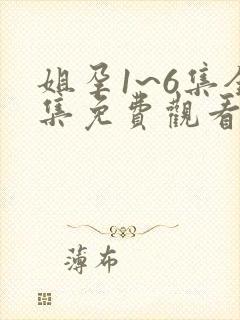 姐孕1~6集全
集免費觀看
薄布